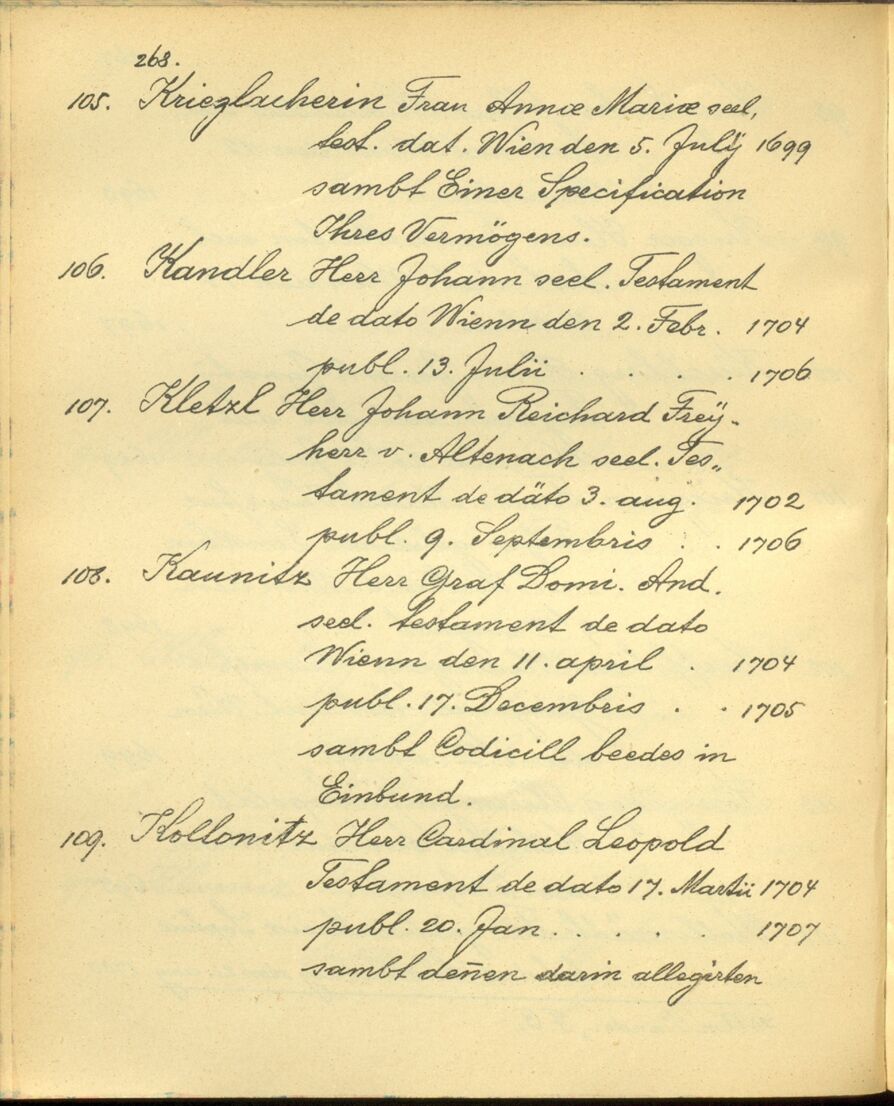 268.
105. Krieglacherin Frau Annæ Mariæ seel,
test. dat. Wien den 5. Julÿ 1699
sambt Einer Specification
Ihres Vermögens.
106. Kandler Herr Johann seel. Testament
de dato Wienn den 2. Febr. 1704
publ. 13. Julii . . . . 1706
107. Kletzl Herr Johann Reichard Freÿ-
herr v. Altenach seel. Tes„
tament de däto 3. aug. 1702
publ. 9. Septembris . . 1706
108. Kaunitz Herr Graf Domi. And.
seel. testament de dato
Wienn den 11. april . 1704
publ. 17. Decembris . . 1705
sambt Codicill beedes in
Einbund.
109. Kollonitz Herr Cardinal Leopold
Testament de dato 17. Martii 1704
publ. 20. Jan . . . . . 1707
sambt deñen darin allegirten